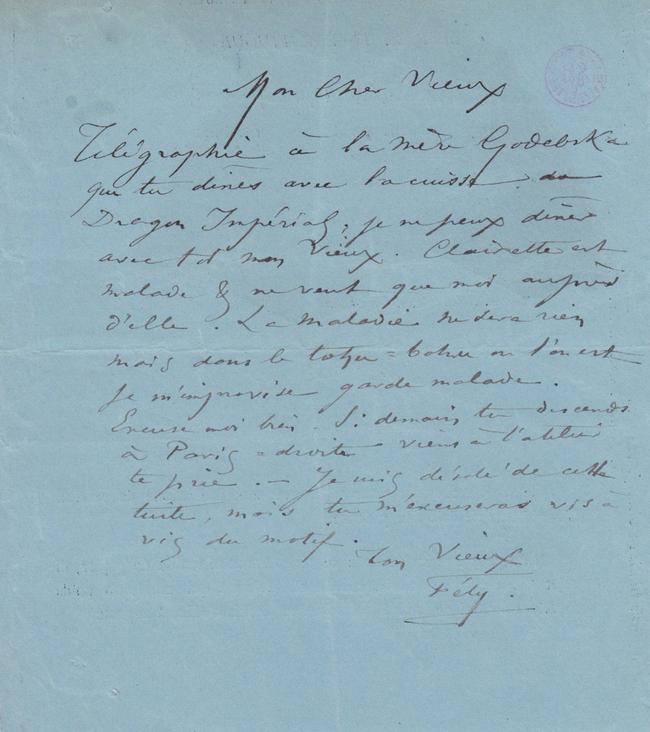 Mon Cher Vieux
Télégraphie à la mère Godebska
que tu dînes avec la cuisse du
Dragon Impérial, je ne peux dîner
avec toi mon Vieux. Clairette est
malade & ne veut que moi auprès
d'elle. La maladie ne sera rien
mais dans le tohu-bohu où l'on est
je m'improvise garde malade.
Excuse moi bien. Si demain tu descends
à Paris = droite viens à l'atelier
te prie. — Je suis désolé de cette
tuite, mais tu m'excuseras vis à
vis du motif.
ton Vieux
Fély.